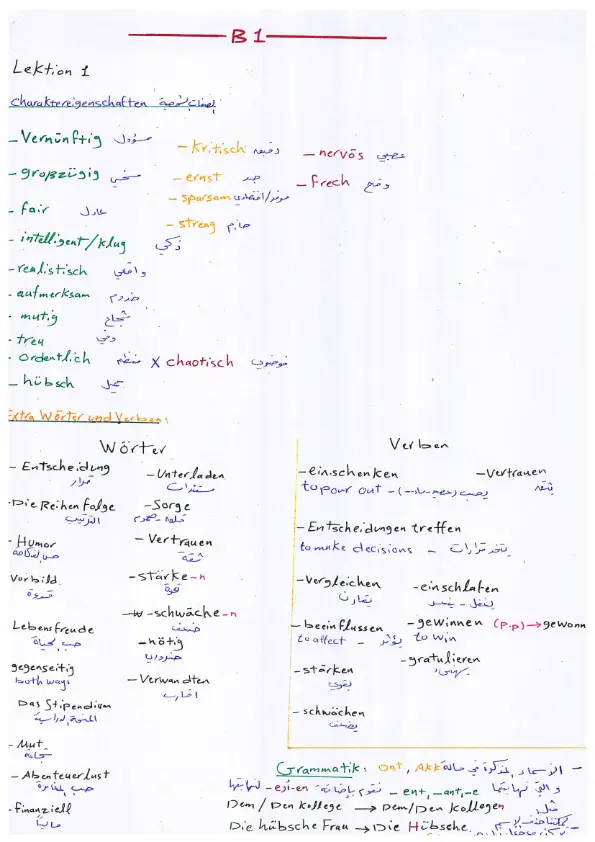 B1
Lektion 1
Charaktereigenschaften الصفات الشخصية
- Vernünftig مسؤول
- großzügig سخي
- fair عادل
- intelligent/klug ذكي
- realistisch واقعي
- aufmerksam
- mutig شجاع
- treu وفي
- ordentlich منظم X chaotisch فوضوي
- hübsch جميل
- Kritisch
- ernst جد
- sparsam موفر/اقتصادي
- streng حازم
- nervös عصبي
- frech وقح
Extra Wörter und Verben:
Wörter
- Entscheidung
قرار
- Die Reihenfolge
الترتيب
- Humor
حس الفكاهة
Vorbild
قدوة
Lebensfreude
حب الحياة
gegenseitig
both ways
Das Stipendium
المنحة الدراسية
- Mut
شجاعة
- Abenteuerlust
حب المغامرة
- finanziell
مالياً
- Unterladen
مستندات
- Sorge
قلق - هموم
- Vertrauen
ثقة
- stärke-n
قوة
- schwäche-n
ضعف
- nötig
ضروري
- Verwandten
اقارب
Verben
- einschenken
to pour out - يصب
- Vertrauen
يثق
- Entscheidungen treffen
to make decisions - يتخذ قرارات
- Vergleichen
يقارن
- einschlafen
- beeinflussen
to affect - يؤثر
- gewinnen (p.p) → gewonn
to win
- gratulieren
يهنئ
- stärken
يقوي
- schwächen
يضعف
Grammatik: Dat, Akk الأسماء المذكرة في حالة -
و التي نهايتها -ent, -ant, -e نقوم بإضافة -en أو -n لنهايتها
Dem/Den Kollege → Dem/Den Kollegen مثل
Die hübsche Frau → Die Hübsche.